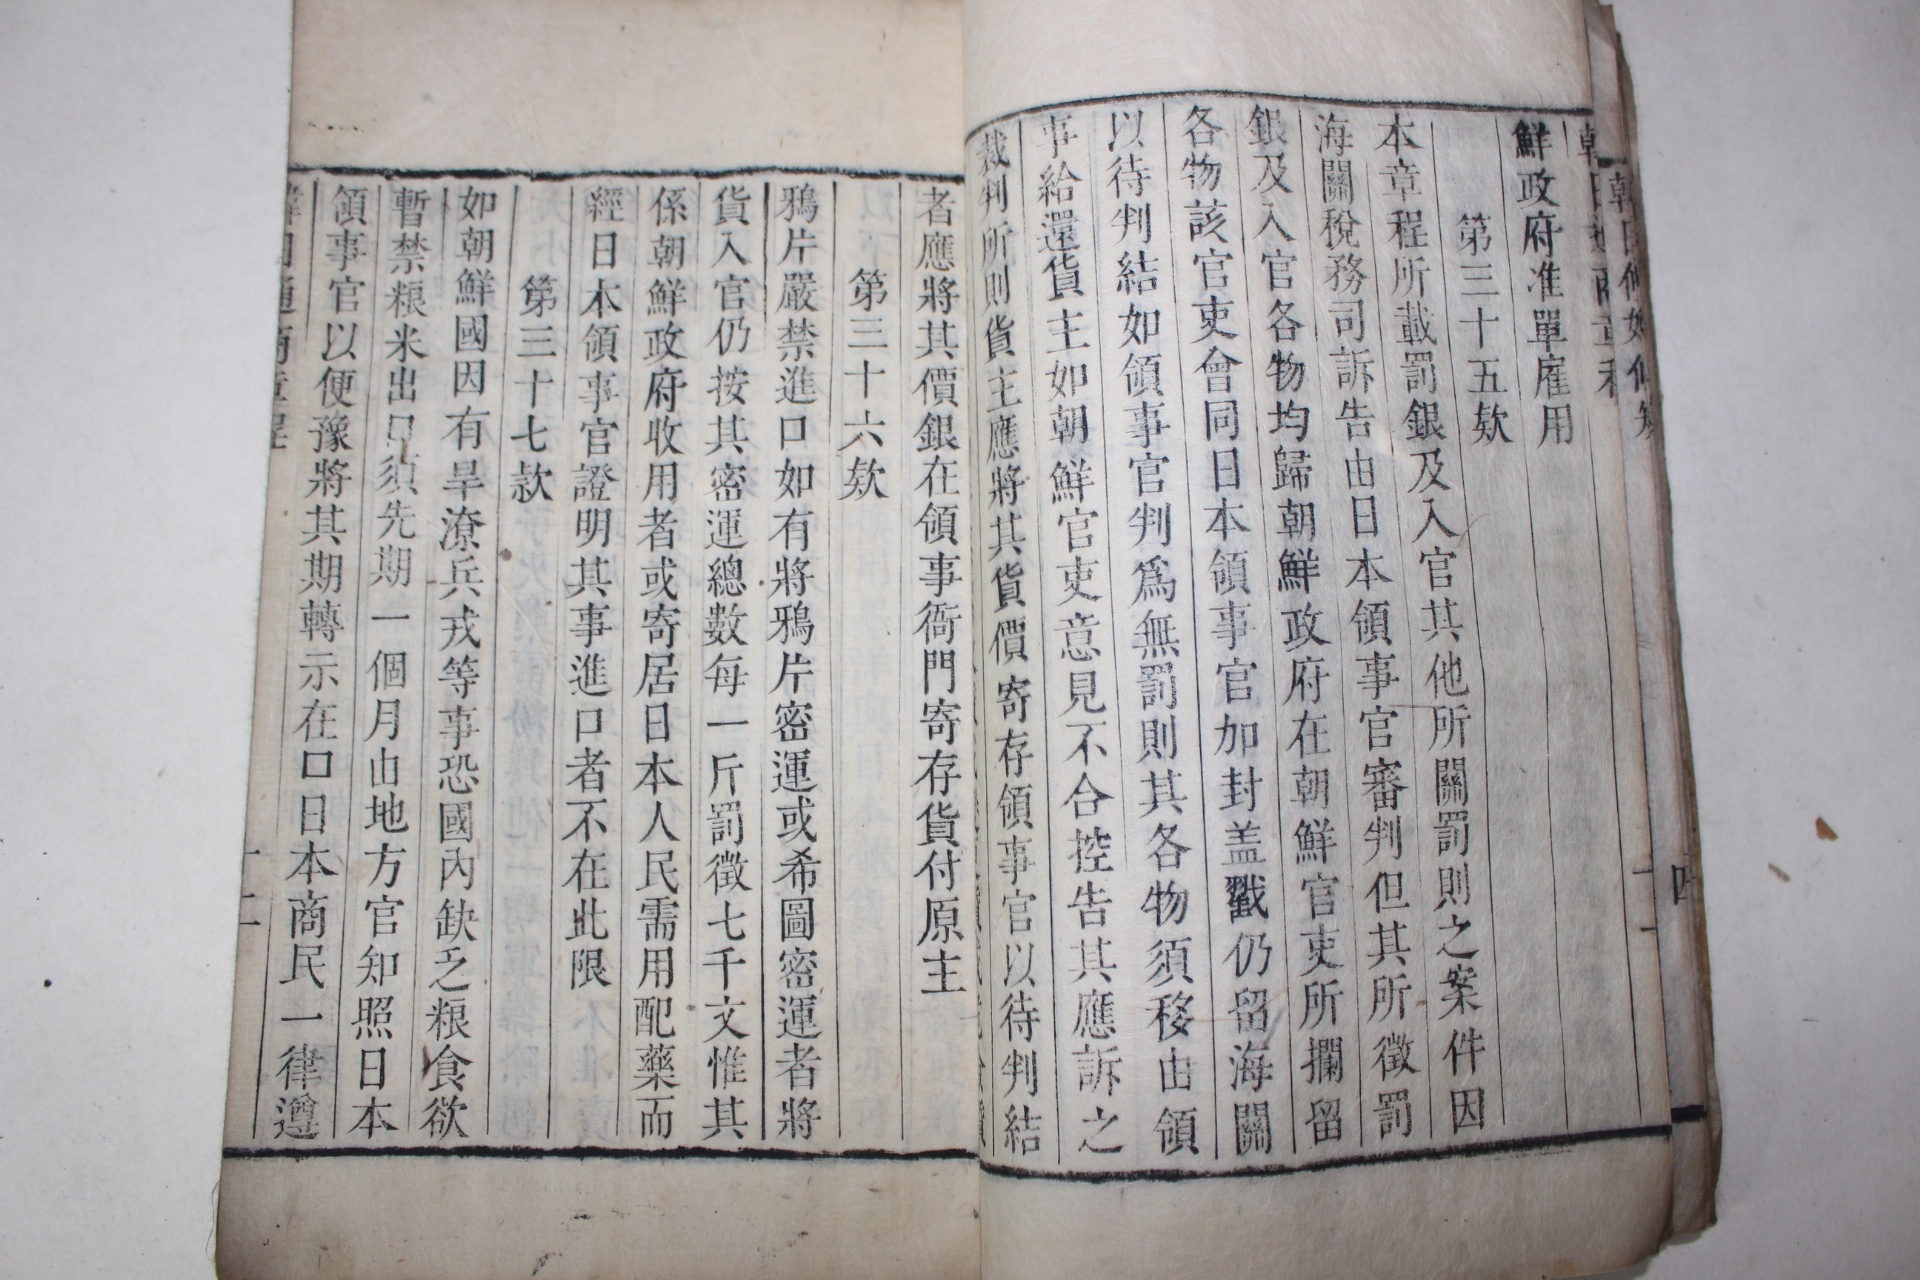 鮮政府准單雇用
第三十五欵
本章程所載罰銀及入官其他所關罰則之案件因
海關稅務司訴告由日本領事官審判但其所徵罰
銀及入官各物均歸朝鮮政府在朝鮮官吏所攔留
各物該官吏會同日本領事官加封盖戳仍留海關
以待判結如領事官判爲無罰則其各物須移由領
事給還貨主如朝鮮官吏意見不合控告其應訴之
裁判所則貨主應將其貨價寄存領事官以待判結
者應將其價銀在領事衙門寄存貨付原主
第三十六欵
鴉片嚴禁進口如有將鴉片密運或希圖密運者將
貨入官仍按其密運總數每一斤罰徵七千文惟其
係朝鮮政府收用者或寄居日本人民需用配藥而
經日本領事官證明其事進口者不在此限
第三十七款
如朝鮮國因有旱潦兵戎等事恐國內缺乏粮食欲
暫禁粮米出口須先期一個月由地方官知照日本
領事官以便豫將其期轉示在口日本商民一律遵
十二